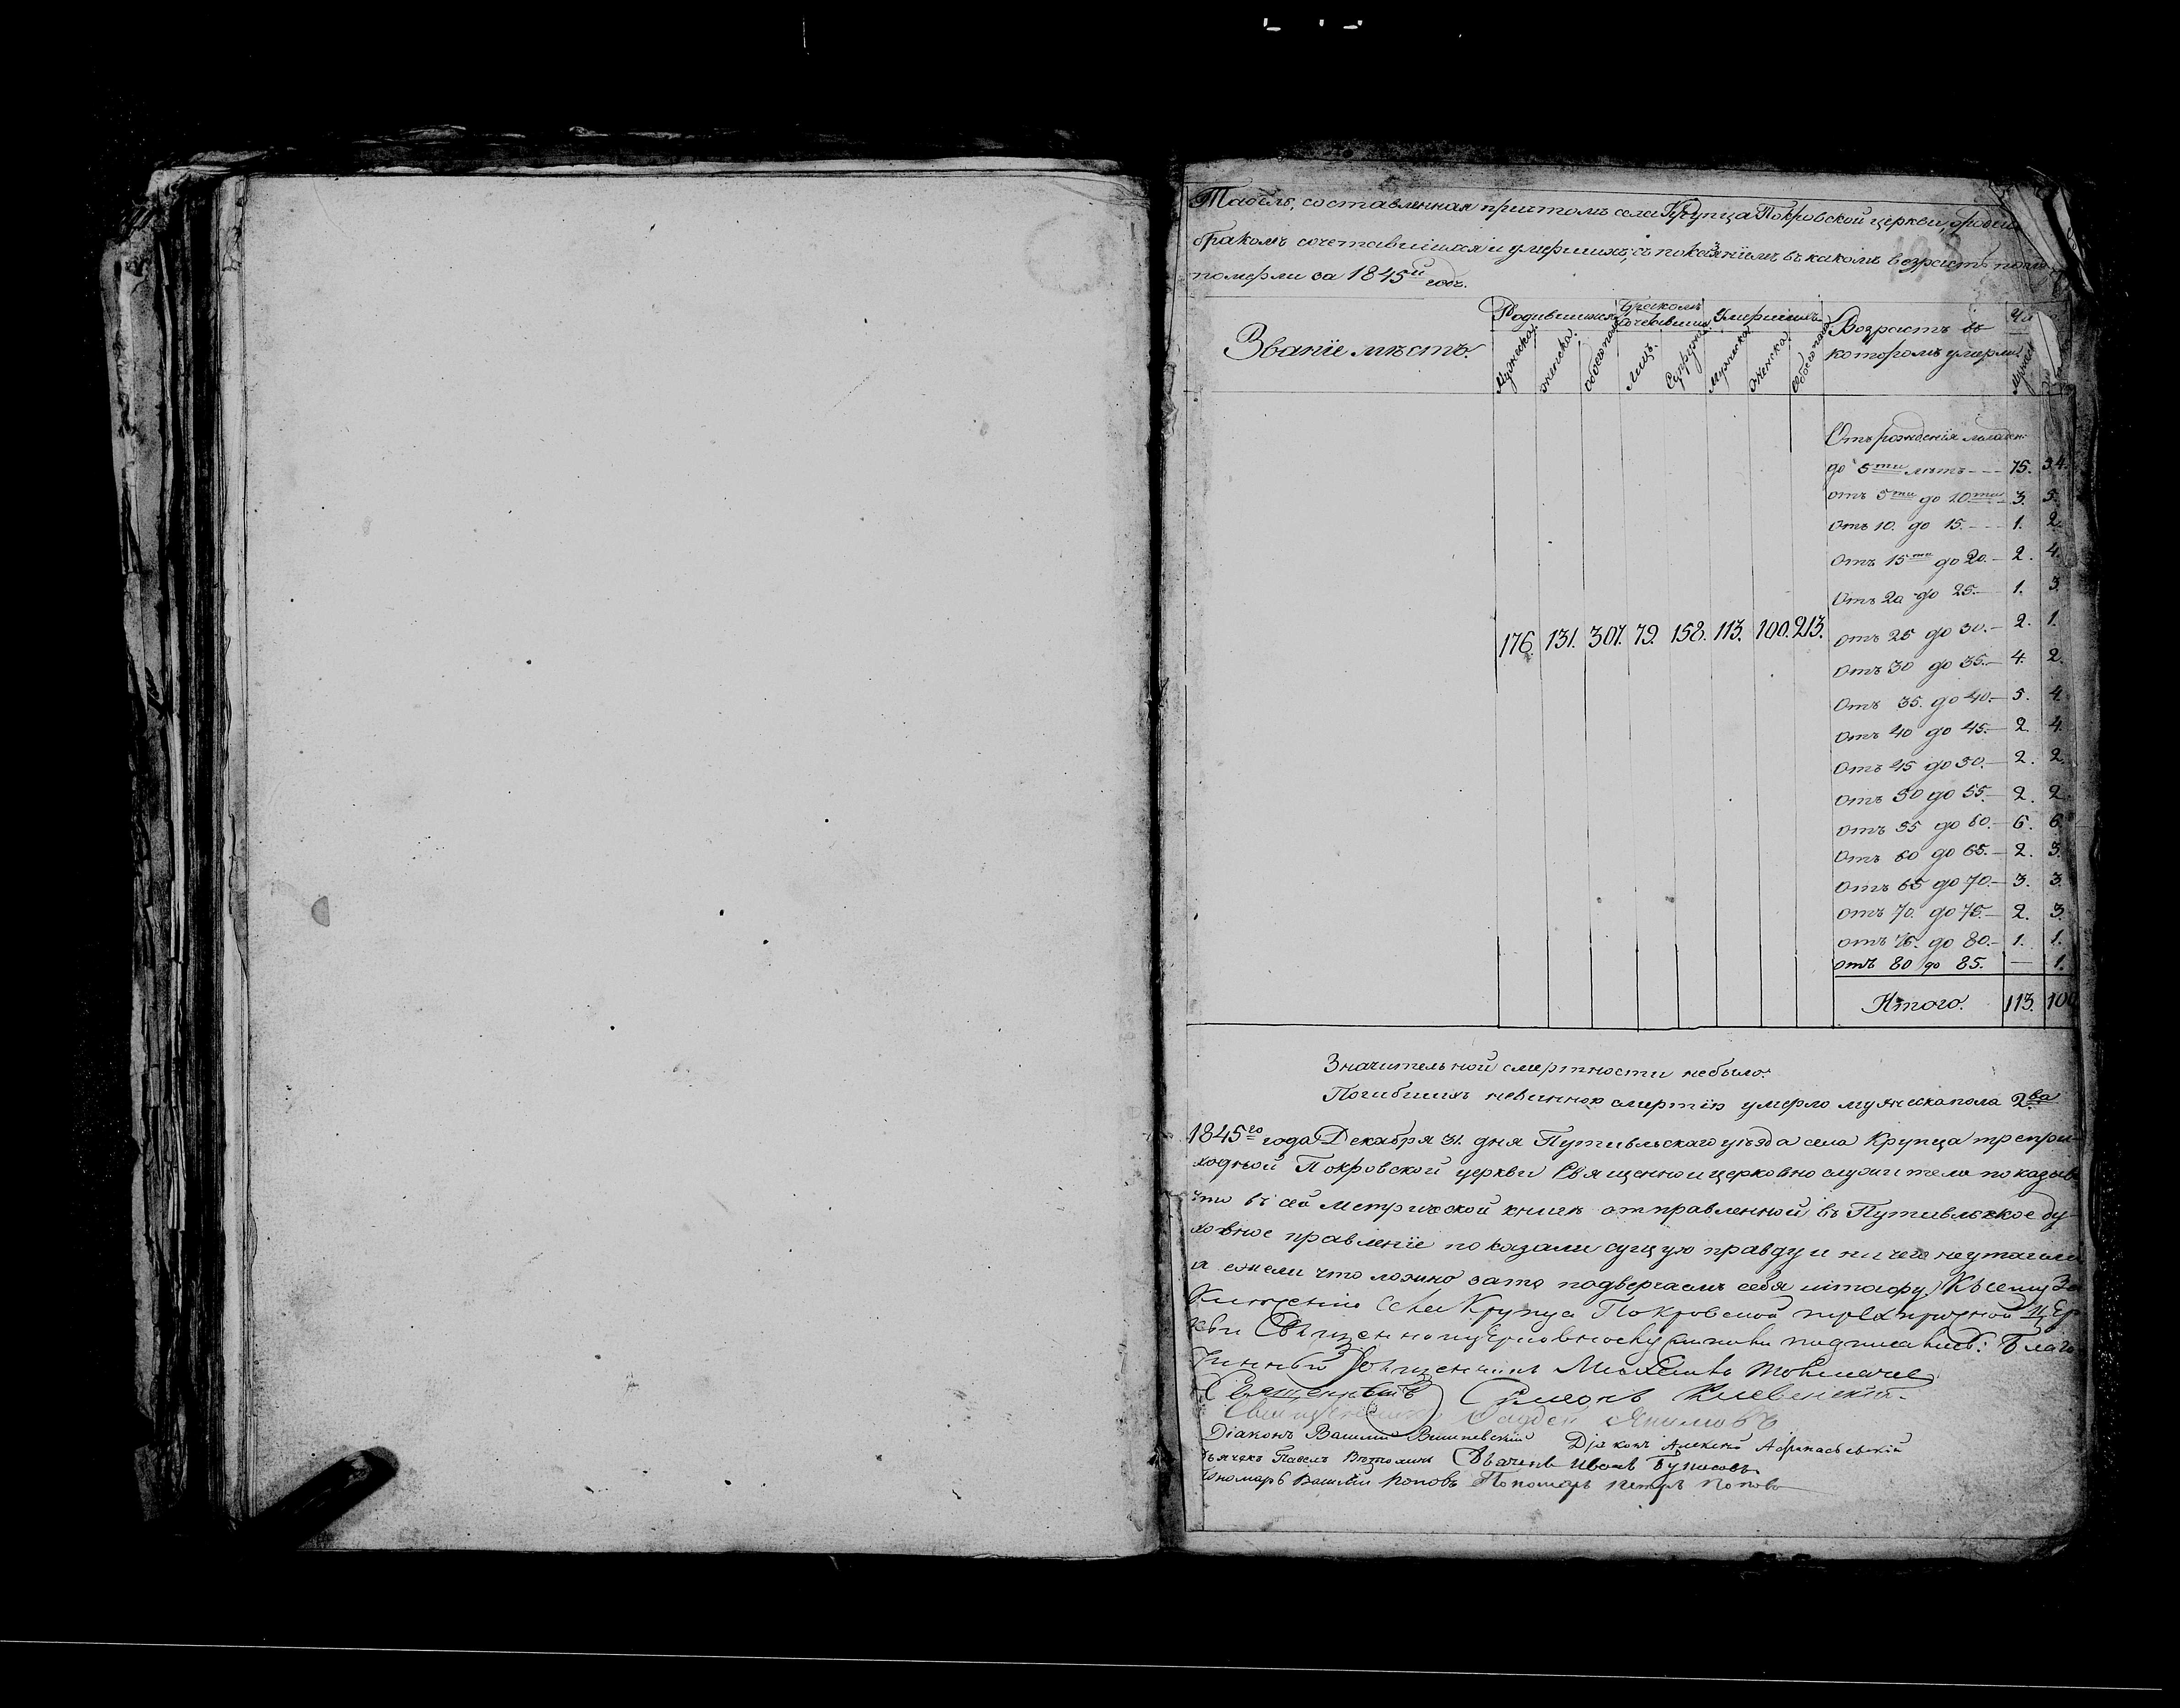 Табель, составленная притомъ села Крупца Покровской церкви,
бракомъ сочетавшихся и умершихъ, съ показанiемъ въ какомъ возрастѣ
померли за 1845й годъ.
Званiе мѣстъ.
Родившихся
Бракомъ сочетавшихся
Умершихъ
Возрастъ въ
которомъ умерли
Мужеска.
Женска.
Обоего пола
Лицъ.
Супруж.
Мужеска.
Женска.
Обоего пола
176. 131. 307. 79. 158. 113. 100. 213.
Отъ рожденiя младен.
до 5ти лѣтъ --- 75. 34.
отъ 5ти до 10ти 3. 5.
Отъ 10. до 15. --- 1. 2.
Отъ 15ти до 20. – 2. 4.
Отъ 20 до 25. – 1. 3.
отъ 25 до 30. – 2. 1.
отъ 30 до 35. – 4. 2.
Отъ 35. до 40. – 5. 4.
Отъ 40 до 45. – 2. 4.
Отъ 45 до 50. – 2. 2.
Отъ 50 до 55. – 2. 2.
отъ 55 до 60. – 6. 6.
Отъ 60 до 65. – 2. 3.
Отъ 65 до 70. – 3. 3.
отъ 70. до 75. – 2. 3.
отъ 75. до 80. – 1. 1.
отъ 80 до 85. — 1.
Итого. 113. 100
Значительной смертности небыло.
Погибшихъ невинною смертiю умерло мужеска пола 2ва
1845го года Декабря 31. дня Путивльскаго уѣзда села Крупца трепри-
ходной Покровской церкви Священно и церковно служители показыв
что въ сей метрической книгѣ отправленной въ Путивльское ду-
ховное правленiе показали сущую правду и ничего неутаили
а ежели что ложно зато подвергаемъ себя штрафу. Къ сему
села Крупца Покровской трехприходной Цер-
кви подписались: Благо
чинный Священникъ
Священникъ Симеонъ Клевенскiй.
Священникъ
Дiаконъ Василiй Вишневскiй Дiаконъ Алексѣй Афанасьевскiй
Дьячекъ Павелъ Дьячекъ Иванъ
Пономарь Василiй Поповъ Пономарь Петръ Поповъ